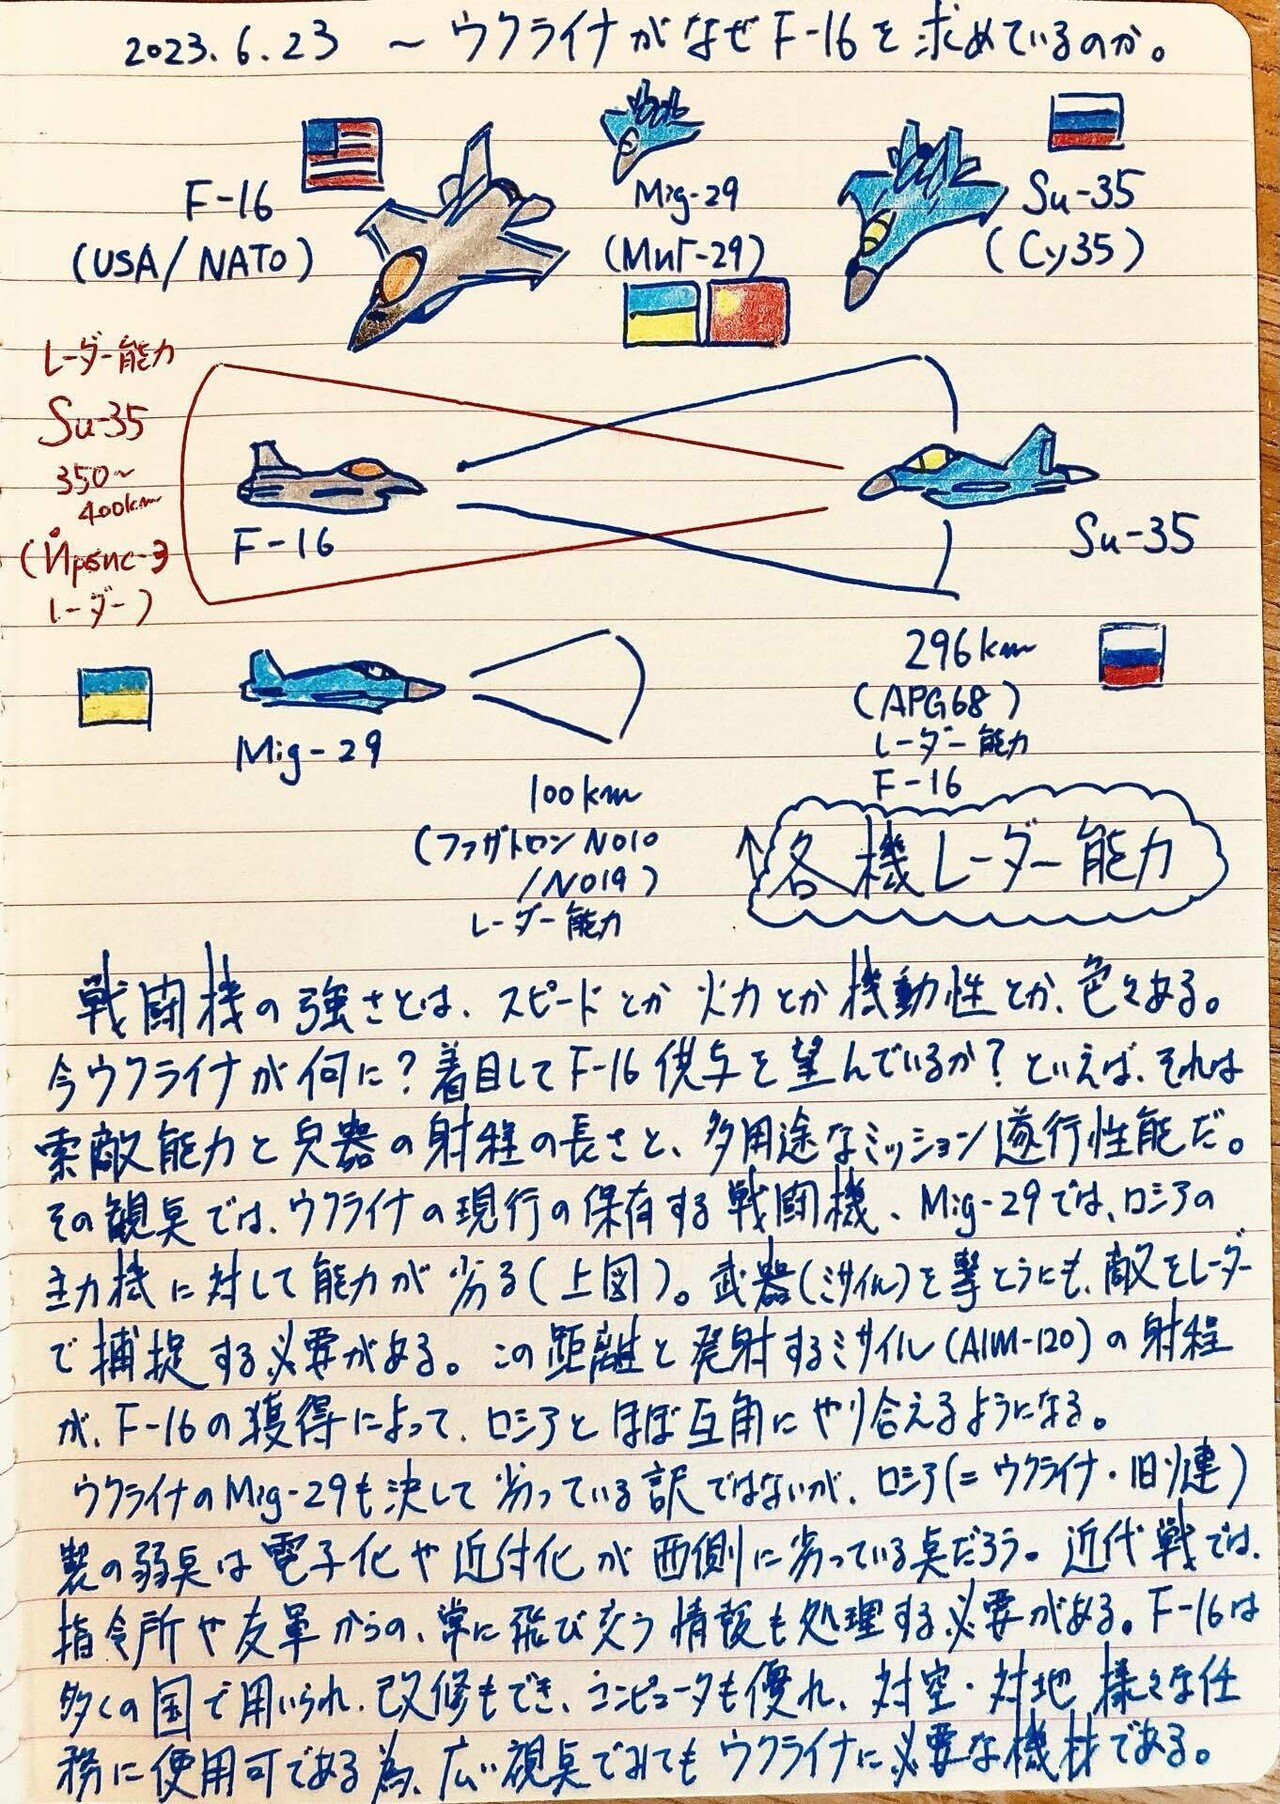 2023.6.23 ～ウクライナがなぜF-16を求めているのか。
F-16
(USA/NATO)
Mig-29
(МиГ-29)
Su-35
(Су35)
レーダー能力
Su-35
350～
400km
(Ирбис-Э
レーダー)
F-16
Su-35
Mig-29
100km
(ファザトロンN010
/N019)
レーダー能力
296km
(APG68)
レーダー能力
F-16
↑各機レーダー能力
戦闘機の強さとは、スピードとか火力とか機動性とか、色々ある。
今ウクライナが何に?着目してF-16供与を望んでいるか?といえば、それは
索敵能力と兵器の射程の長さと、多用途なミッション遂行性能だ。
その観点では、ウクライナの現行の保有する戦闘機、Mig-29では、ロシアの
主力機に対して能力が劣る(上図)。武器(ミサイル)を撃とうにも、敵をレーダー
で捕捉する必要がある。この距離と発射するミサイル(AIM-120)の射程
が、F-16の獲得によって、ロシアとほぼ互角にやり合えるようになる。
ウクライナのMig-29も決して劣っている訳ではないが、ロシア(=ウクライナ・旧ソ連)
製の弱点は電子化や近代化が西側に劣っている点だろう。近代戦では、
指令所や友軍からの、常に飛び交う情報も処理する必要がある。F-16は
多くの国で用いられ、改修もでき、コンピュータも優れ、対空・対地 様々な任
務に使用可である為、広い視点でみてもウクライナに必要な機材である。